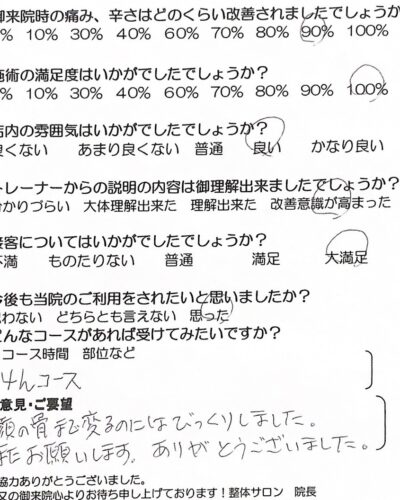 御来院時の痛み、辛さはどのくらい改善されましたでしょうか
% 10% 30% 40% 60% 70% 80% 90% 100%
施術の満足度はいかがでしたでしょうか？
% 10% 30% 40% 60% 70% 80% 90% 100%
店内の雰囲気はいかがでしたでしょうか？
良くない あまり良くない 普通 良い かなり良い
トレーナーからの説明の内容は御理解出来ましたでしょうか？
分かりづらい 大体理解出来た 理解出来た 改善意識が高まった
接客についてはいかがでしたでしょうか？
不満 ものたりない 普通 満足 大満足
今後も当院のご利用をされたいと思いましたか？
思わない どちらとも言えない 思った
どんなコースがあれば受けてみたいですか？
コース時間 部位など
コース
意見・ご要望
顔の骨 変るのにはびっくりしました。
お願いします。ありがとうございました。
協力ありがとうございました。
又の御来院心よりお待ち申し上げております！整体サロン 院長